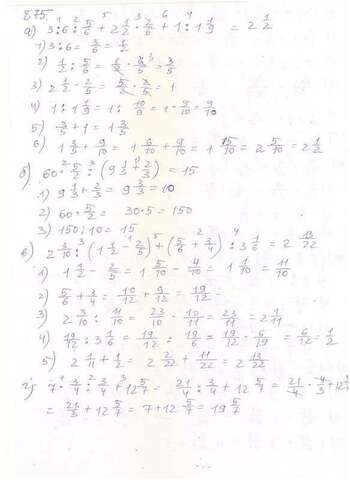 875.
а) 3:6:5/6 + 2 1/2 · 2/5 + 1:1 1/9 = 2 1/2
1) 3:6 = 3/6 = 1/2
2) 1/2 : 5/6 = 1/2 · 6/5 = 3/5
3) 2 1/2 · 2/5 = 5/2 · 2/5 = 1
4) 1:1 1/9 = 1: 10/9 = 1 · 9/10 = 9/10
5) 3/5 + 1 = 1 3/5
6) 1 3/5 + 9/10 = 1 6/10 + 9/10 = 1 15/10 = 2 5/10 = 2 1/2
б) 60 · 5/2 : (9 1/3 + 2/3) = 15
1) 9 1/3 + 2/3 = 9 3/3 = 10
2) 60 · 5/2 = 30 · 5 = 150
3) 150:10 = 15
в) 2 3/10 : (1 1/2 - 2/5) + (5/6 + 3/4) : 3 1/6 = 2 13/22
1) 1 1/2 - 2/5 = 1 5/10 - 4/10 = 1 1/10 = 11/10
2) 5/6 + 3/4 = 10/12 + 9/12 = 19/12
3) 2 3/10 : 11/10 = 23/10 · 10/11 = 23/11 = 2 1/11
4) 19/12 : 3 1/6 = 19/12 : 19/6 = 19/12 · 6/19 = 6/12 = 1/2
5) 2 1/11 + 1/2 = 2 2/22 + 11/22 = 2 13/22
г) 7 · 3/4 : 3/4 + 12 5/7 = 21/4 : 3/4 + 12 5/7 = 21/4 · 4/3 + 12
= 21/3 + 12 5/7 = 7 + 12 5/7 = 19 5/7